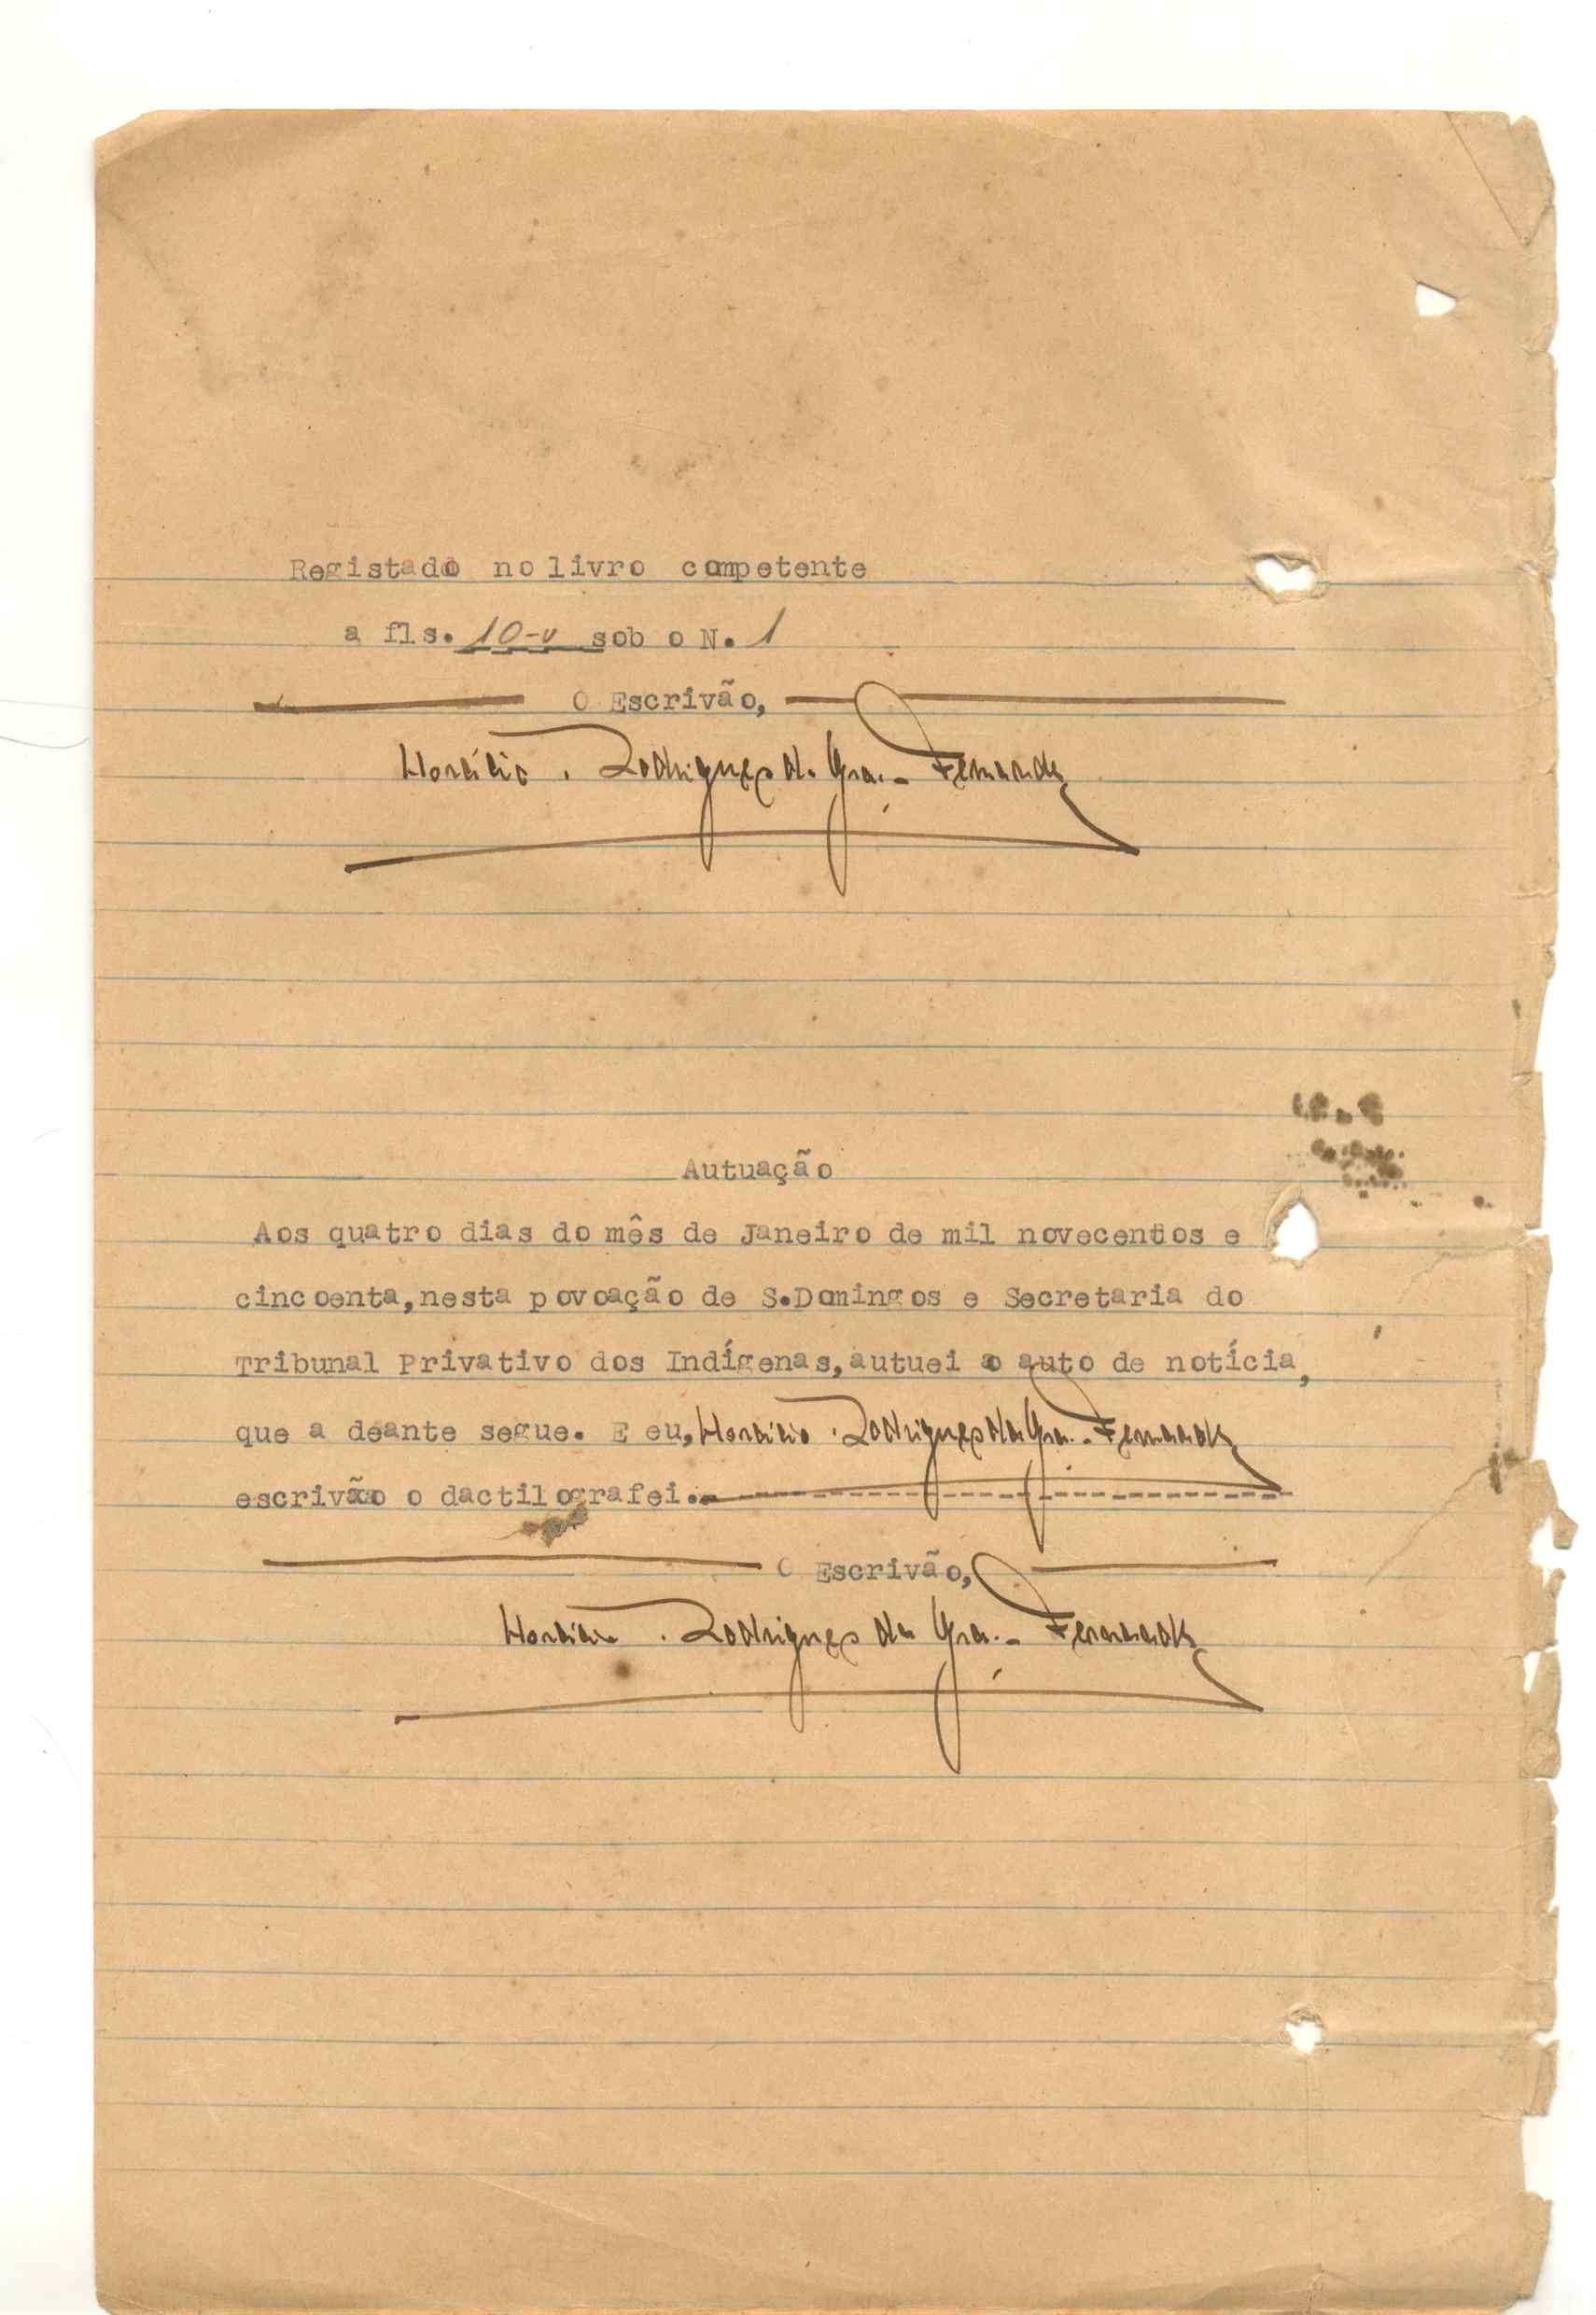 Registado no livro competente
a fls. 10-v sob o N. 1
O Escrivão,
Rodrigues da Fernandes
Autuação
Aos quatro dias do mês de Janeiro de mil novecentos e
cincoenta, nesta povoação de S.Domingos e Secretaria do
Tribunal Privativo dos Indígenas, autuei o auto de notícia,
que a deante segue. E eu, Rodrigues da Fernandes
escrivão o dactilografei.-
O Escrivão,
Rodrigues da Fernandes